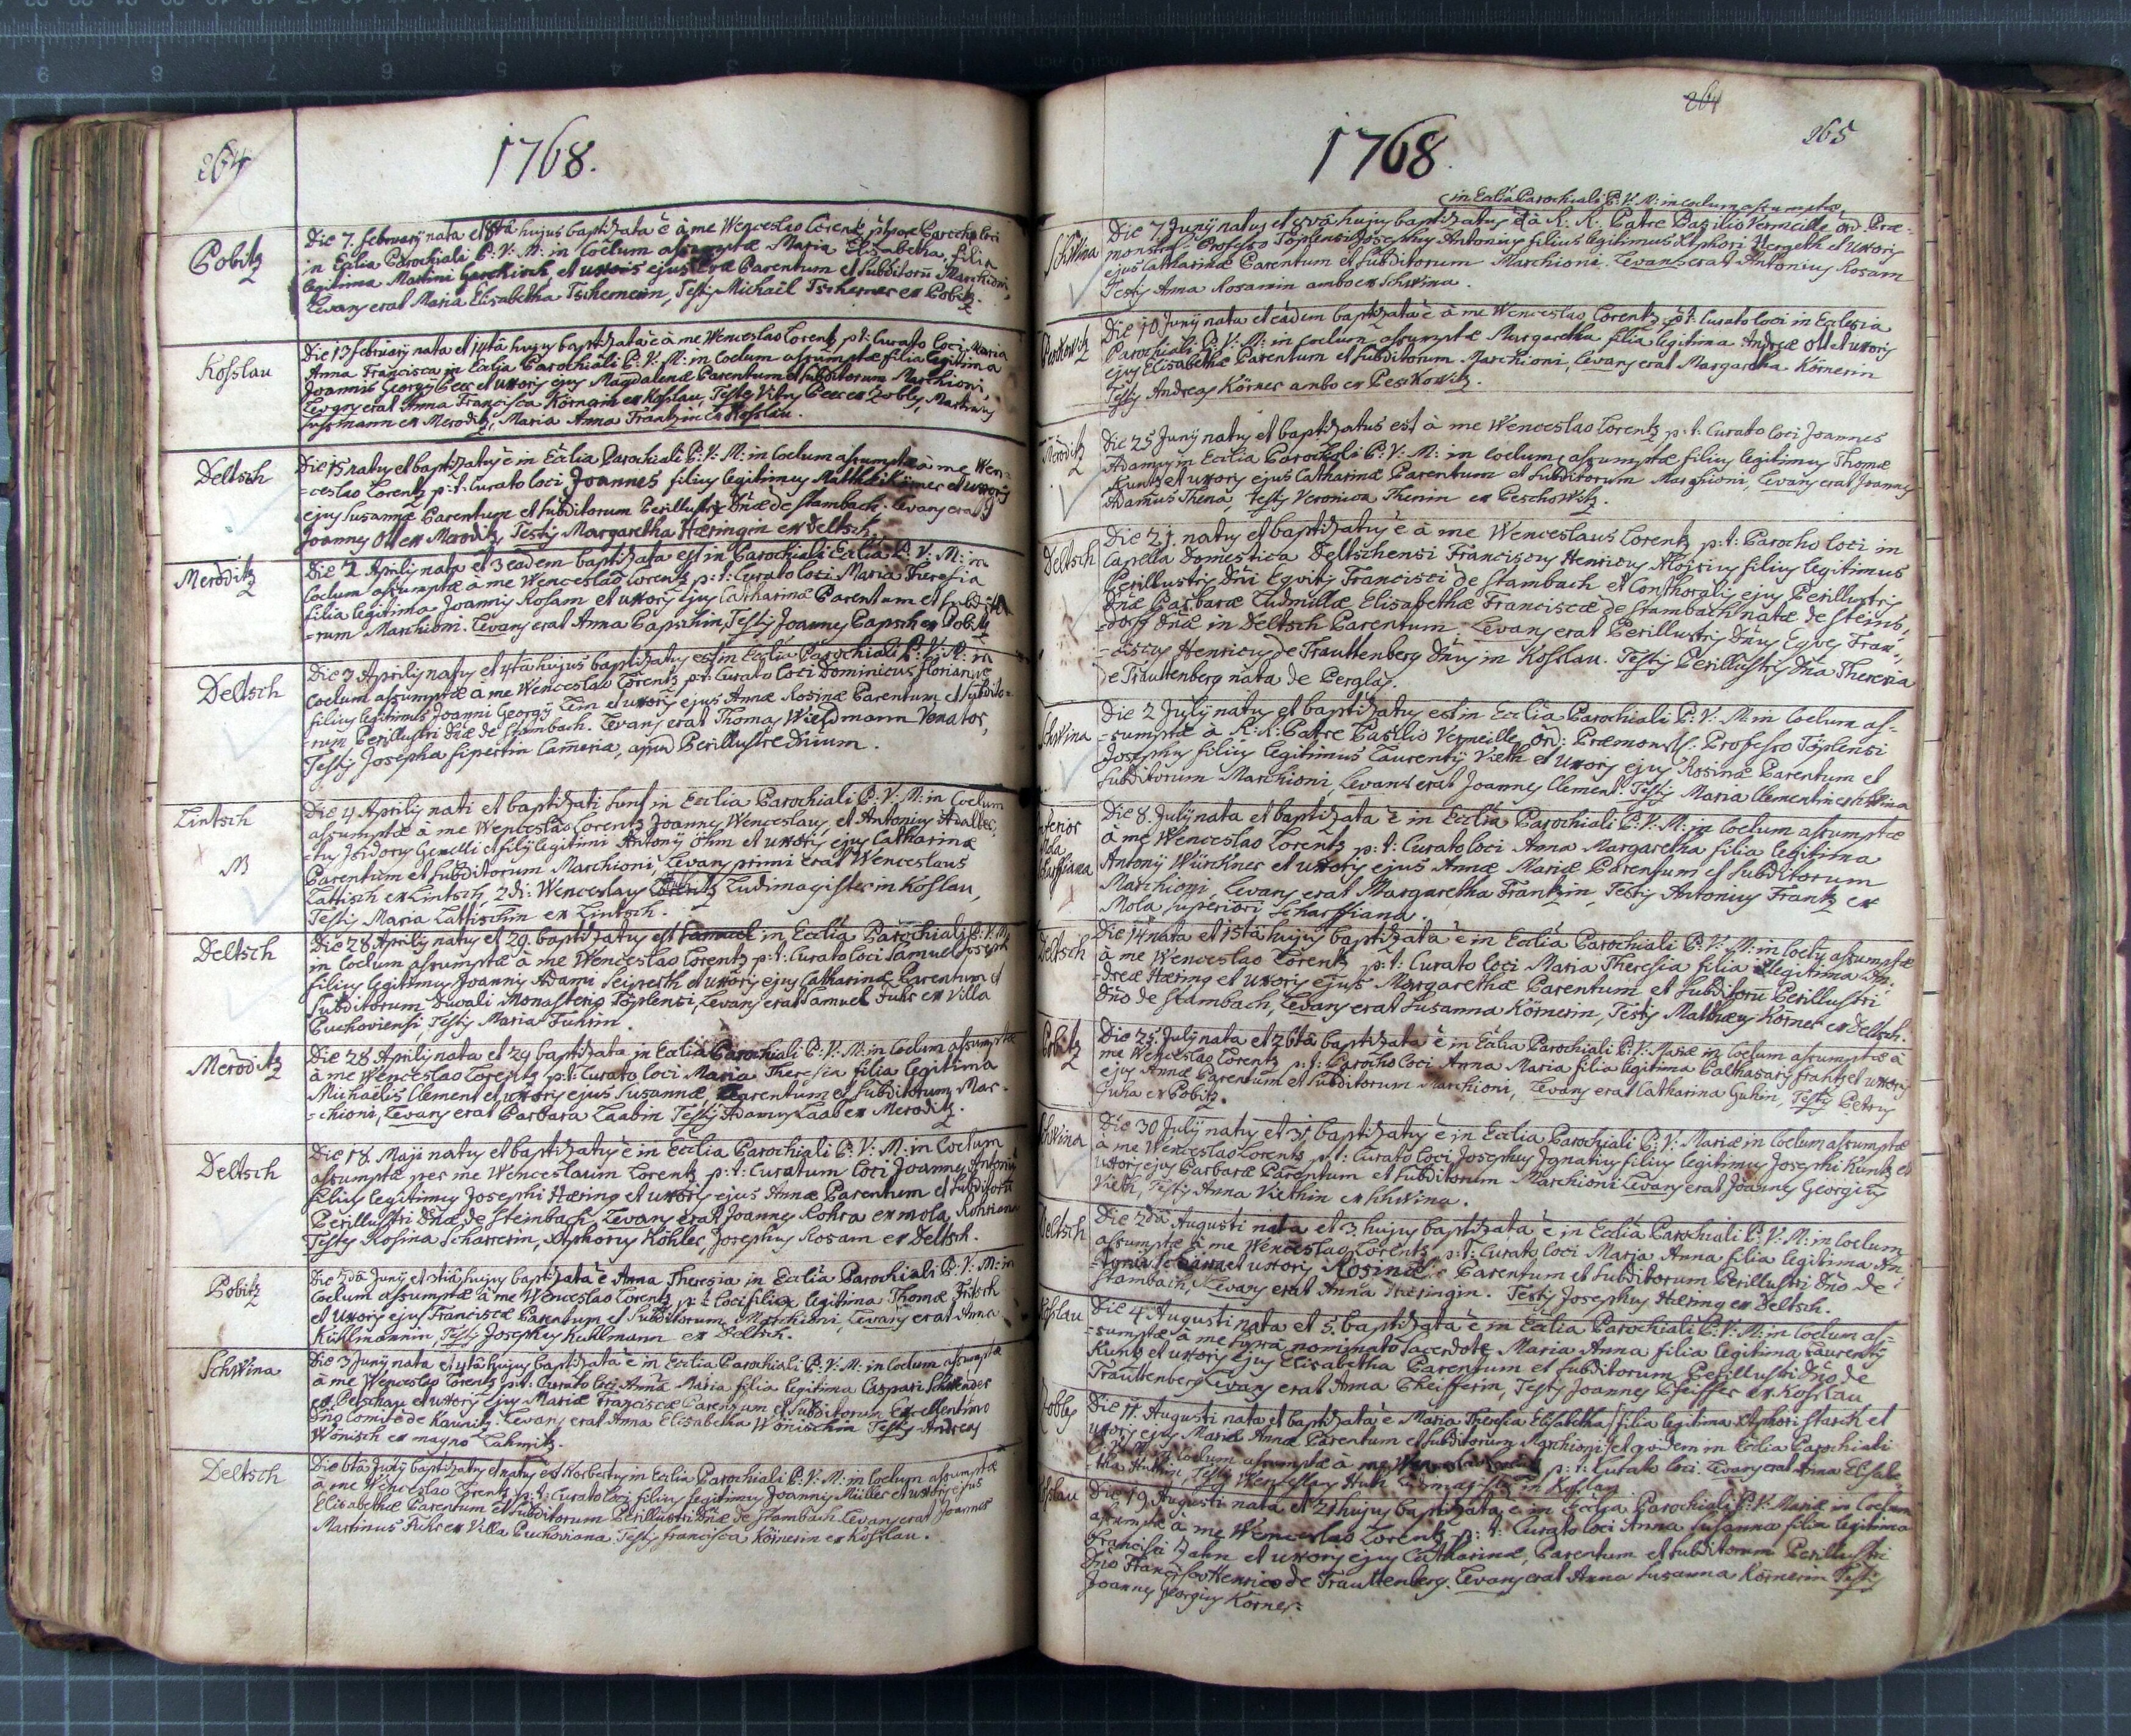 264
1768.
Pobitz
Die 7. februarij nata et 8tâ hujus baptizata ē à me Wenceslao Lorentz p: t: Parocho loci
in Ecclia Parochiali B: V: M: in Coelum assumptæ Maria Elisabetha, filia
legitima Martini et uxoris ejus Evæ Parentum et subditorū Marchioni,
Levans erat Maria Elisabetha Tschernerin, Testis Michaël Tscherner ex Pobitz.
Kosslau
Die 13 februarij nata et 14tâ hujus baptizata ē à me Wenceslao Lorentz p: t: Curato loci Maria
Anna Francisca in Ecclia Parochiali B: V: M: in Coelum assumptæ filia legitima
Joannis Georgij et uxoris ejus Magdalenæ Parentum et subditorum Marchioni,
Levans erat Anna Francisca Körnerin ex Kosslau, Testes Vitus ex Zobles, Martinus
ex Meroditz, Maria Anna Frantzin ex Kosslau.
Deltsch
Die 15 natus et baptizatus ē in Ecclia Parochiali B: V: M: in Coelum assumptæ à me Wen-
-ceslao Lorentz p: t: Curato loci Joannes filius legitimus Matthæi Körner et uxoris
ejus Susannæ Parentum et subditorum Perillustris Dnæ de Stambach. Levans erat
Joannes Ott ex Meroditz, Testis Margaretha Hæringin ex Deltsch.
Meroditz
Die 2 Aprilis nata et 3 eadem baptizata est in Parochiali Ecclia B: V: M: in
Coelum assumptæ à me Wenceslao Lorentz p: t: Curato loci Maria Theresia
filia legitima Joannis Rosam et uxoris ejus Catharinæ Parentum et subdito-
-rum Marchioni. Levans erat Anna Papschin, Testis Joannes Papsch ex Pobitz
Deltsch
Die 3 Aprilis natus et 4tâ hujus baptizatus est in Ecclia Parochiali B: V: M: in
Coelum assumptæ à me Wenceslao Lorentz p: t: Curato loci Dominicus Florianus
filius legitimus Joanni Georgij Lein et uxoris ejus Annæ Rosinæ Parentum et subdito-
-rum Perillustri Dnæ de Stambach. Levans erat Thomas Wiedmann Venator,
Testis Josepha Sipertin Cameria, apud Perillustre Dnium.
Lintsch
Die 4 Aprilis nati et baptizati sunt in Ecclia Parochiali B: V: M: in Coelum
assumptæ à me Wenceslao Lorentz Joannes Wenceslaus, et Antonius Adalber-
-tus Isidorus Gemelli et filij legitimi Antonij Öhm et uxoris ejus Catharinæ
Parentum et subditorum Marchioni, Levans primi erat Wenceslaus
Lattisch ex Lintsch, 2di: Wenceslaus Ludimagister in Koslau,
Testis Maria Lattischin ex Lintsch.
Deltsch
Die 28 Aprilis natus et 29. baptizatus est in Ecclia Parochiali B: V: M:
in Coelum assumptæ à me Wenceslao Lorentz p: t: Curato loci Samuel Joseph
filius legitimus Joannis Adami et uxoris ejus Catharinæ Parentum et
subditorum Monasterio Töplensi, Levans erat Samuel Fuhr ex Villa
Puchoviensi, Testis Maria Fuhrin.
Meroditz
Die 28 Aprilis nata et 29 baptizata in Ecclia Parochiali B: V: M: in Coelum assumptæ
à me Wenceslao Lorentz p: t: Curato loci Maria Theresia filia legitima
Michaëlis Clement et uxoris ejus Susannæ, Parentum et subditorum Mar-
-chioni, Levans erat Barbara Laabin Testis Adamus Laab ex Meroditz.
Deltsch
Die 18. Maji natus et baptizatus ē in Ecclia Parochiali B: V: M: in Coelum
assumptæ per me Wenceslaum Lorentz p: t: Curatum loci Joannes Antonius
filius legitimus Josephi Hæring et uxoris ejus Annæ Parentum et subditorū
Perillustri Dnæ de Steinbach, Levans erat Joannes Rohra ex mola Rohriana
Testes Rosina Scharrerin, Xtphorus Köhler, Josephus Rosam ex Deltsch.
Pobitz
Die 2dâ Junij et 3tiâ hujus baptizata ē Anna Theresia in Ecclia Parochiali B: V: M: in
Coelum assumptæ à me Wenceslao Lorentz p: t: loci filia legitima Thomæ Fritsch
et uxoris ejus Franciscæ Parentum et subditorum Marchioni, Levans erat Anna
Kuhlmannin, Testis Josephus Kuhlmann ex Deltsch.
Schwina
Die 3 Junij nata et 4tâ hujus baptizata ē in Ecclia Parochiali B: V: M: in Coelum assumptæ
à me Wenceslao Lorentz p: t: Curato loci Anna Maria filia legitima Caspari
ex Petschau et uxoris ejus Mariæ Franciscæ Parentum et subditorum Excellentmo
Dno Comite de Kaunitz. Levans erat Anna Elisabetha Wönischin Testis Andreas
Wönisch ex magno Lahmitz.
Deltsch
Die 6tâ Junij baptizatus et natus est Norbertus in Ecclia Parochiali B: V: M: in Coelum assumptæ
à me Wenceslao Lorentz p: t: Curato loci filius legitimus Joannis Müller et uxoris ejus
Elisabethæ Parentum et subditorum Perillustri Dnæ de Stambach Levans erat Joannes
Martinus Fuhr ex Villa Puchoviana Testis francisca Körnerin ex Kosslau.
264
265
1768
in Ecclia Parochiali B: V: M: in coelum assumptæ
Schwina
Die 7 Junij natus et 9vâ hujus baptizatus ē à R. R. Patre Basilio Vermeille ord: Præ-
monstr: Professo Töplensi Josephus Antonius filius legitimus Xtphori Hergeth et uxoris
ejus Catharinæ Parentum et subditorum Marchioni. Levans erat Antonius Rosam
Testis Anna Rosamin ambo ex Schwina.
Die 10. Junij nata et eâdem baptizata ē à me Wenceslao Lorentz p: t: Curato loci in Ecclesia
Parochiali B: V: M: in Coelum assumptæ Margaretha filia legitima Andreæ Ott et uxoris
ejus Elisabethæ Parentum et subditorum Marchioni, Levans erat Margaretha Körnerin
Testis Andreas Körner ambo ex Peskowitz.
Meroditz
Die 25 Junij natus et baptizatus est à me Wenceslao Lorentz p: t: Curato loci Joannes
Adamus in Ecclia Parochiali B: V: M: in Coelum assumptæ filius legitimus Thomæ
Kuntz et uxoris ejus Catharinæ Parentum et subditorum Marchioni, Levans erat Joannes
Adamus Thena, testis Veronica Thenin ex Peschowitz.
Deltsch
Die 21. natus et baptizatus ē à me Wenceslaus Lorentz p: t: Parocho loci in
Capella Domestica Deltschensi Franciscus Henricus Aloisius filius legitimus
Perillustris Dni Equitis Francisci de Stambach et Conthoralis ejus Perillustris
Dnæ Barbaræ Ludmillæ Elisabethæ Franciscæ de Stambach natæ de Steins-
-dorff Dnæ in Deltsch Parentum. Levans erat Perillustris Dnus Eques Fran-
-ciscus Henricus de Trauttenberg Dnus in Kosslau. Testis Perillustris Dna Theresia
de Trauttenberg nata de Perglas.
Schwina
Die 2 Julij natus et baptizatus est in Ecclia Parochiali B: V: M: in Coelum as-
-sumptæ à R: R: Patre Basilio Vermeille ord: Præmonstr: Professo Töplensi
Josephus filius legitimus Laurentij Vieth et uxoris ejus Rosinæ Parentum et
subditorum Marchioni, Levans erat Joannes Clement. Testis Maria Clementin ex Schwina
Die 8. Julij nata et baptizata ē in Ecclia Parochiali B: V: M: in Coelum assumptæ
à me Wenceslao Lorentz p: t: Curato loci Anna Margaretha filia legitima
Antonij Würchner et uxoris ejus Annæ Mariæ Parentum et subditorum
Marchioni, Levans erat Margaretha Frantzin, Testis Antonius Frantz ex
Mola superiori Scharffiana.
Deltsch
Die 14 nata et 15tâ hujus baptizata ē in Ecclia Parochiali B: V: M: in Coelū assumptæ
à me Wenceslao Lorentz p: t: Curato loci Maria Theresia filia legitima An-
-dreæ Hæring et uxoris ejus Margarethæ Parentum et subditorū Perillustri
Dno de Stambach, Levans erat Susanna Körnerin, Testis Matthæus Körner ex Deltsch.
Pobitz
Die 25 Julij nata et 26tâ baptizata ē in Ecclia Parochiali B: V: Mariæ in Coelum assumptæ à
me Wenceslao Lorentz p: t: Parocho loci Anna Maria filia legitima Balthasaris Frantz et uxoris
ejus Annæ Parentum et subditorum Marchioni, Levans erat Catharina Guhin, Testis Petrus
Guha ex Pobitz.
Schwina
Die 30 Julij natus et 31 baptizatus ē in Ecclia Parochiali B: V: Mariæ in Coelum assumptæ
à me Wenceslao Lorentz p: t: Curato loci Josephus Ignatius filius legitimus Josephi Kuntz et
uxoris ejus Barbaræ Parentum et subditorum Marchioni Levans erat Joannes Georgius
Vieth, Testis Anna Viethin ex Schwina.
Deltsch
Die 2dâ Augusti nata et 3 hujus baptizata ē in Ecclia Parochiali B: V: M: in Coelum
assumptæ à me Wenceslao Lorentz p: t: Curato loci Maria Anna filia legitima An-
et uxoris Rosinæ Parentum et subditorum Perillustri Dno de
Stambach, Levans erat Anna Hæringin. Testis Josephus Hæring ex Deltsch.
Kosslau
Die 4 Augusti nata et 5. baptizata ē in Ecclia Parochiali B: V: M: in Coelum as-
-sumptæ à me supra nominato sacerdote Maria Anna filia legitima Laurentij
Kuntz et uxoris ejus Elisabetha Parentum et subditorum Perillustri Dno de
Trauttenberg Levans erat Anna Pheifferin, Testis Joannes Pfeiffer ex Kosslau
Zobles
Die 11. Augusti nata et baptizata ē Maria Theresia Elisabetha filia legitima Xtphori Starck et
uxoris ejus Mariæ Annæ Parentum et subditorum Marchioni et quidem in Ecclia Parochiali
B: V: M: in Coelum assumptæ à me Wenceslao Lorentz p: t: Curato loci. Levans erat Anna Elisabe-
-tha Huthin, Testis Wenceslaus Huth Ludimagister in Kosslau
Kosslau
Die 19 Augusti nata et 21 hujus baptizata ē in Ecclia Parochiali B: V: Mariæ in Coelum
assumptæ à me Wenceslao Lorentz p: t: Curato loci Anna Susanna filia legitima
Francisci Zahn et uxoris ejus Catharinæ, Parentum et subditorum Perillustri
Dno Francisco Henrico de Trauttenberg. Levans erat Anna Susanna Körnerin Testis
Joannes Georgius Körner.